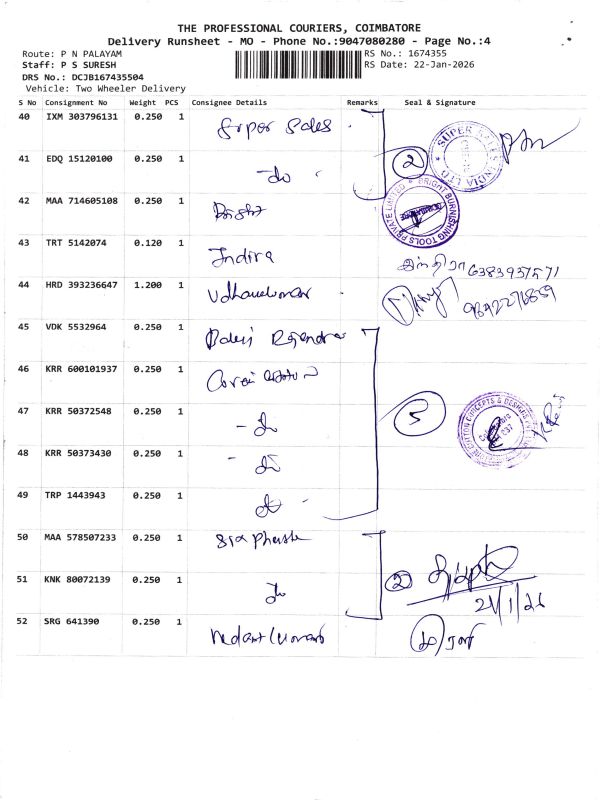 THE PROFESSIONAL COURIERS, COIMBATORE
Delivery Runsheet - MO - Phone No.:9047080280 - Page No.:4
Route: P N PALAYAM RS No.: 1674355
Staff: P S SURESH RS Date: 22-Jan-2026
DRS No.: DCJB167435504
Vehicle: Two Wheeler Delivery
S No Consignment No Weight PCS Consignee Details Remarks Seal & Signature
40 IXM 303796131 0.250 1 Super Sales
SUPER SALES INDIA LTD
41 EDQ 15120100 0.250 1 -do 2
42 MAA 714605108 0.250 1 Bright
BRIGHT BURNISHING TOOLS PRIVATE LIMITED
43 TRT 5142074 0.120 1 Indira இந்திரா 6383937571
44 HRD 393236647 1.200 1 Udhayakumar 9842276859
45 VDK 5532964 0.250 1 Rajendra
46 KRR 600101937 0.250 1
47 KRR 50372548 0.250 1 - do 5
COTTON CONCEPTS & DESIGNS
48 KRR 50373430 0.250 1 - do
49 TRP 1443943 0.250 1 do
50 MAA 578507233 0.250 1
51 KNK 80072139 0.250 1 do 2
21/1/26
52 SRG 641390 0.250 1